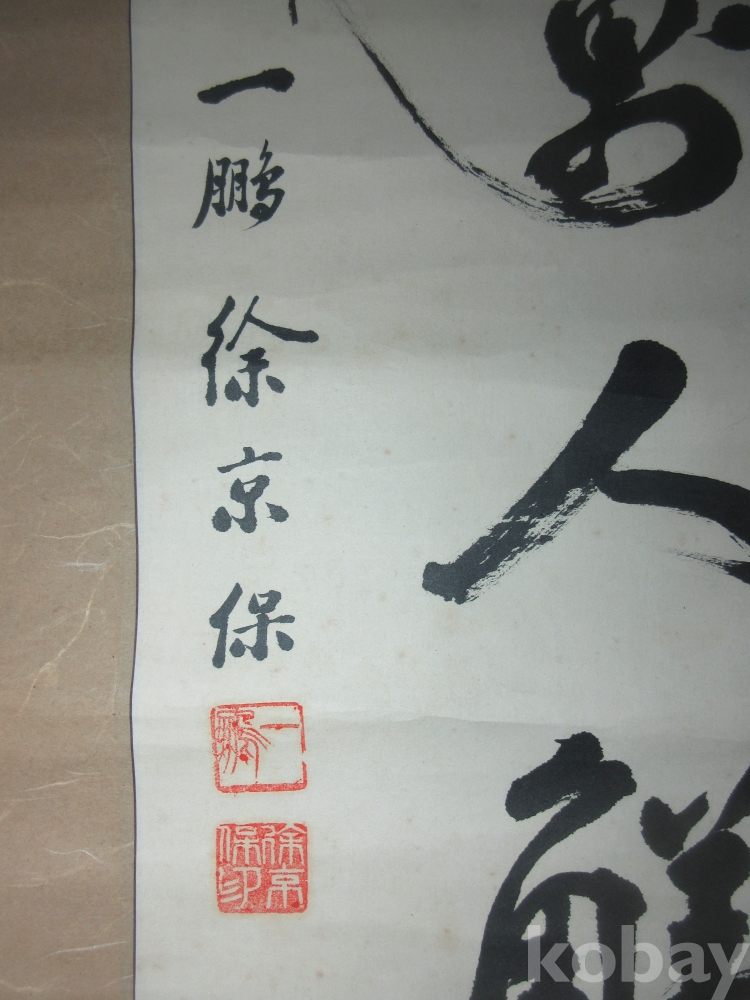 人解
一鵬 徐京保
一鵬
徐京保印
kobay